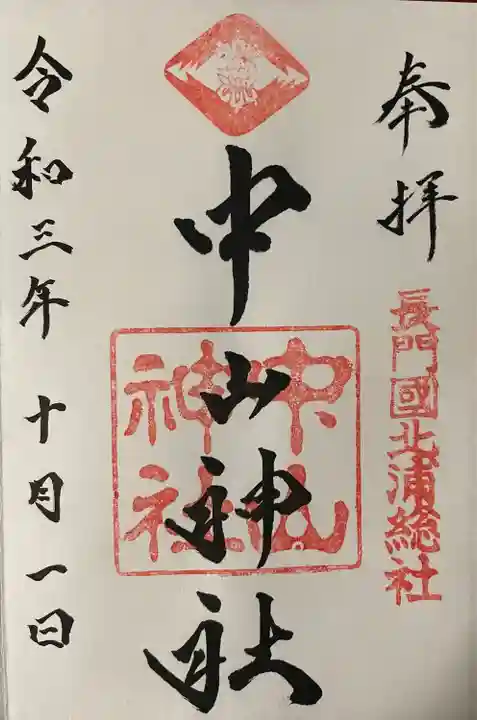 奉拝
長門國北浦総社
中山神社
中山神社
令和三年十月一日